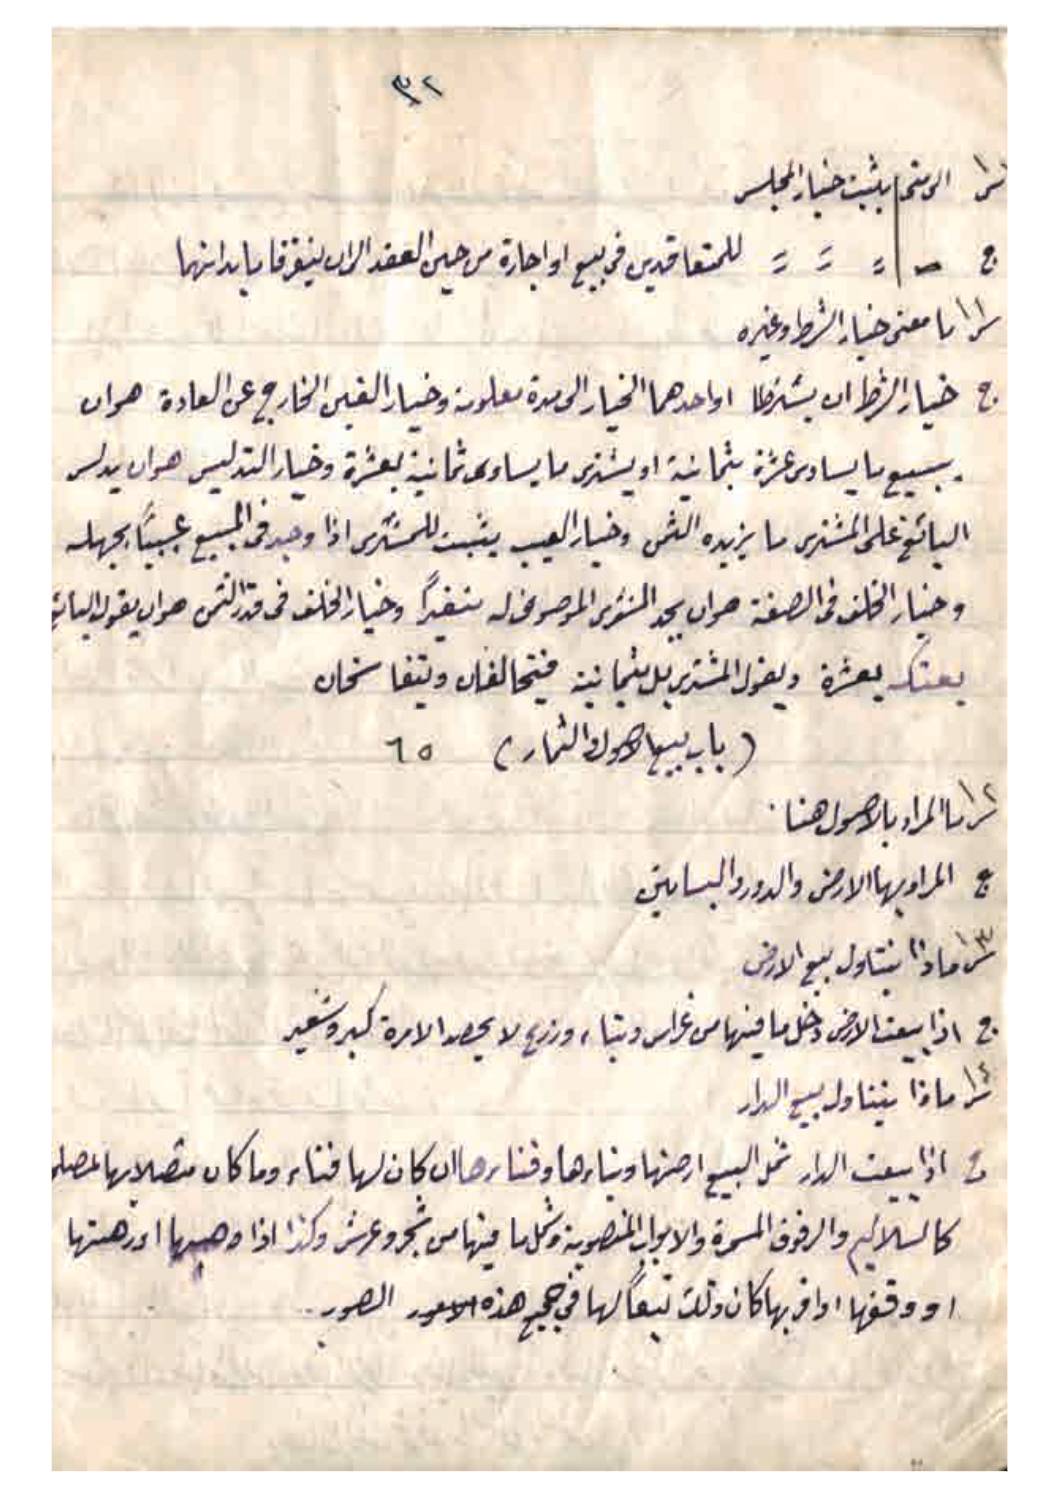 ٣٢
س١٠ الى متى يثبت خيار المجلس
ج = = = للمتعاقدين في بيع او اجارة من حين العقد الى ان يتفرقا بابدانهما
س١١ ما معنى خيار الشرط وغيره
ج خيار الشرط ان يشترطا او احدهما الخيار الى مدة معلومة وخيار الغبن الخارج عن العادة هو ان
يبيع ما يساوي عشرة بثمانية او يشتري ما يساوي ثمانية بعشرة وخيار التدليس هو ان يدلس
البائع على المشتري ما يزيد به الثمن وخيار العيب يثبت للمشتري اذا وجد في المبيع عيباً يجهله
وخيار الخلف في الصفة هو ان يجد المشتري الموصوف له متغيراً وخيار الخلف في قدر الثمن هو ان يقول البائع
بعتكه بعشرة ويقول المشتري بل بثمانية فيتحالفان ويتفاسخان
(باب بيع الاصول والثمار) ٦٥
س١٢ ما المراد بالاصول هنا
ج المراد بها الارض والدور والبساتين
س١٣ ماذا يتناول بيع الارض
ج اذا بيعت الارض دخل ما فيها من غراس وبناء وزرع لا يحصد الا مرة كبر وشعير
س١٤ ماذا يتناول بيع الدار
ج اذا بيعت الدار شمل البيع ارضها وبناءها وفناءها ان كان لها فناء وما كان متصلا بها لمصلحتها
كالسلاليم والرفوف المسمرة والابواب المنصوبة وشمل ما فيها من شجر وعرش وكذا اذا وهبها او رهنها
او وقفها او اقر بها كان ذلك تبعاً لها في جميع هذه الصور